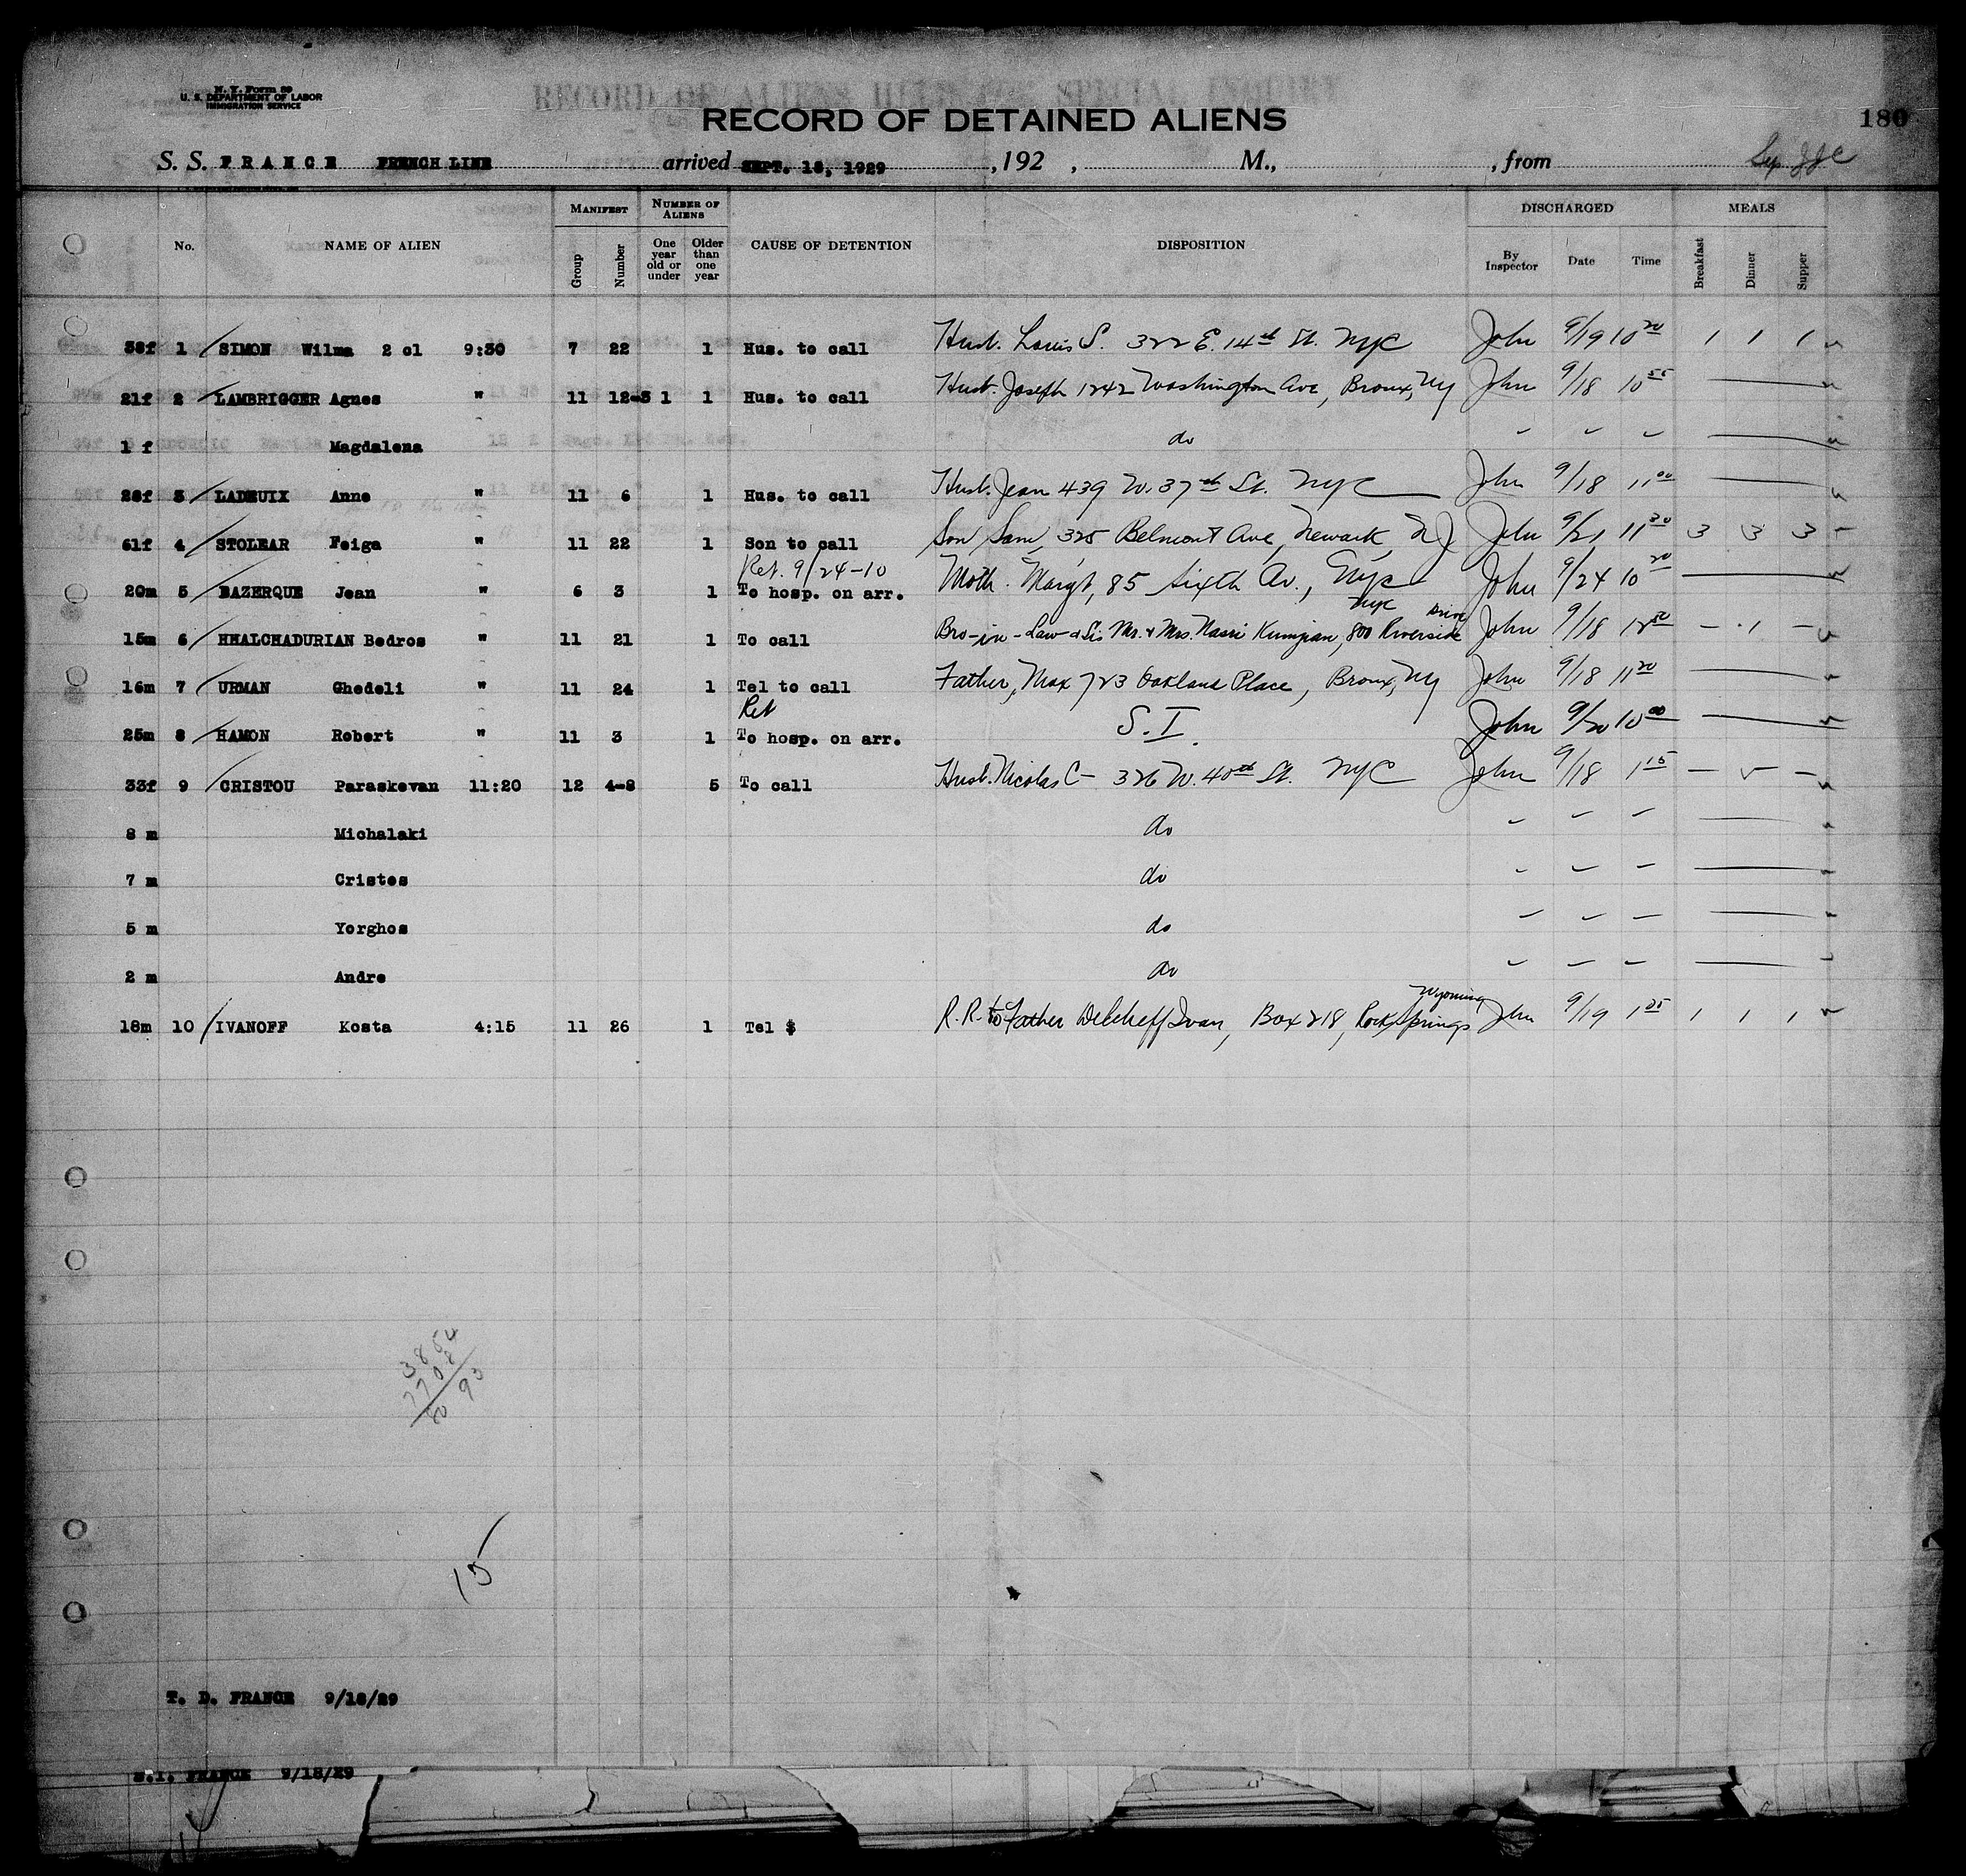 N. Y. Form 89
U. S. DEPARTMENT OF LABOR
IMMIGRATION SERVICE
RECORD OF ALIENS HELD FOR SPECIAL INQUIRY
RECORD OF DETAINED ALIENS
180
S. S. FRANCE FRENCH LINE arrived SEPT. 18, 1929, 192 , M., , from
No. NAME OF ALIEN MANIFEST Group Number NUMBER OF ALIENS One year old or under Older than one year CAUSE OF DETENTION DISPOSITION DISCHARGED By Inspector Date Time MEALS Breakfast Dinner Supper
38f 1 SIMON Wilma 2 cl 9:30 7 22 1 Hus. to call Husb. Louis S. 322 E. 14th St. NYC John 9/19 10 20 1 1 1
21f 2 LAMBRIGGER Agnes " 11 12-3 1 1 Hus. to call Husb. Joseph 1242 Washington Ave, Bronx, NY John 9/18 10 55
1 f Magdalena do
28f 3 LADEUIX Anne " 11 6 1 Hus. to call Husb. Jean 439 W. 37th St. NYC John 9/18 11 00
61f 4 STOLEAR Feiga " 11 22 1 Son to call Son Sam, 325 Belmont Ave, Newark, NJ John 9/21 11 30 3 3 3
Ret. 9/24-10
20m 5 BAZERQUE Jean " 6 3 1 To hosp. on arr. Moth. Margt, 85 Sixth Av., NYC John 9/24 10 20
15m 6 HHALCHADURIAN Bedros " 11 21 1 To call Bro-in-Law & Sis Mr. & Mrs. Nasri Kumjian, 800 Riverside Drive NYC John 9/18 12 50 - 1 -
16m 7 URMAN Ghedeli " 11 24 1 Tel to call Father, Max 723 Oakland Place, Bronx, NY John 9/18 11 20
Ret
25m 8 HAMON Robert " 11 3 1 To hosp. on arr. S.I. John 9/20 10 00
33f 9 CRISTOU Paraskevan 11:20 12 4-8 5 To call Husb. Nicolas C- 326 W. 40th St. NYC John 9/18 1 15 -
8 m Michalaki do
7 m Cristos do
5 m Yorghos do
2 m Andre do
18m 10 IVANOFF Kosta 4:15 11 26 1 Tel $ R.R. to Father Delcheff Ivan, Box 218, Rock Springs Wyoming John 9/19 1 25 1 1 1
7708
15
T. D. FRANCE 9/18/29
S.I. FRANCE 9/18/29